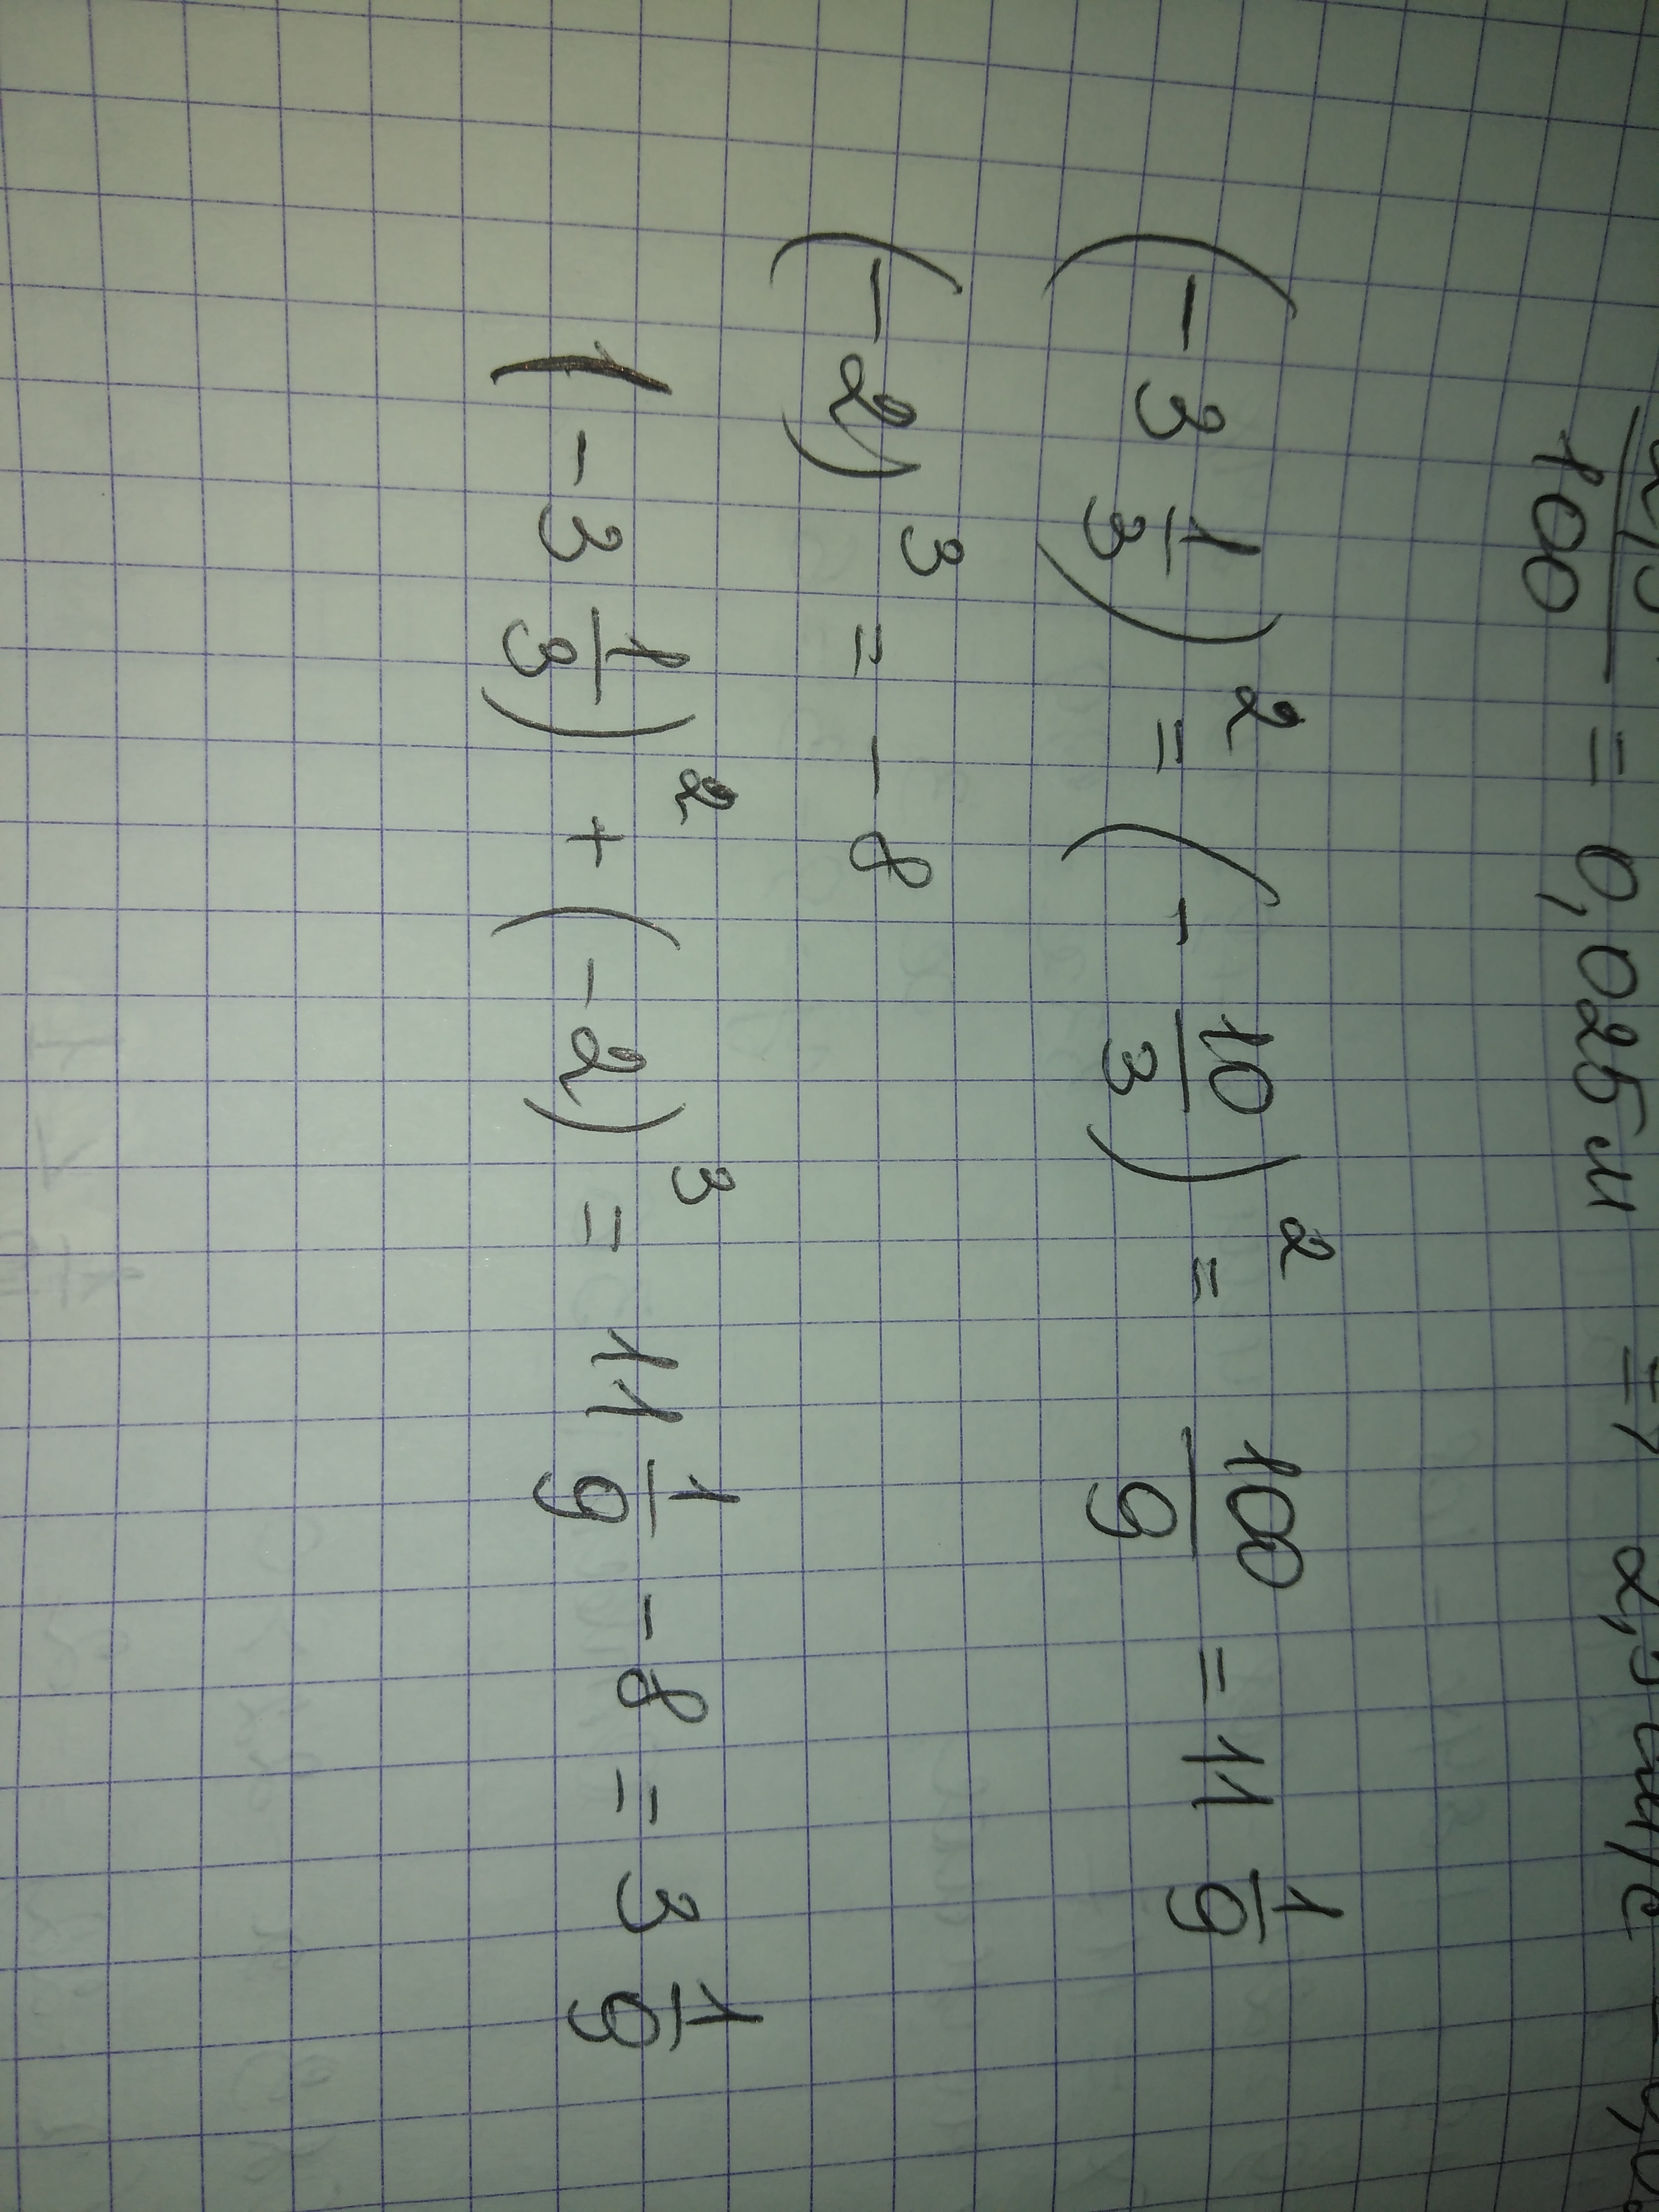 100 = 0,025 м
(-3 1/3)² = (-10/3)² = 100/9 = 11 1/9
(-2)³ = -8
(-3 1/3)² + (-2)³ = 11 1/9 - 8 = 3 1/9